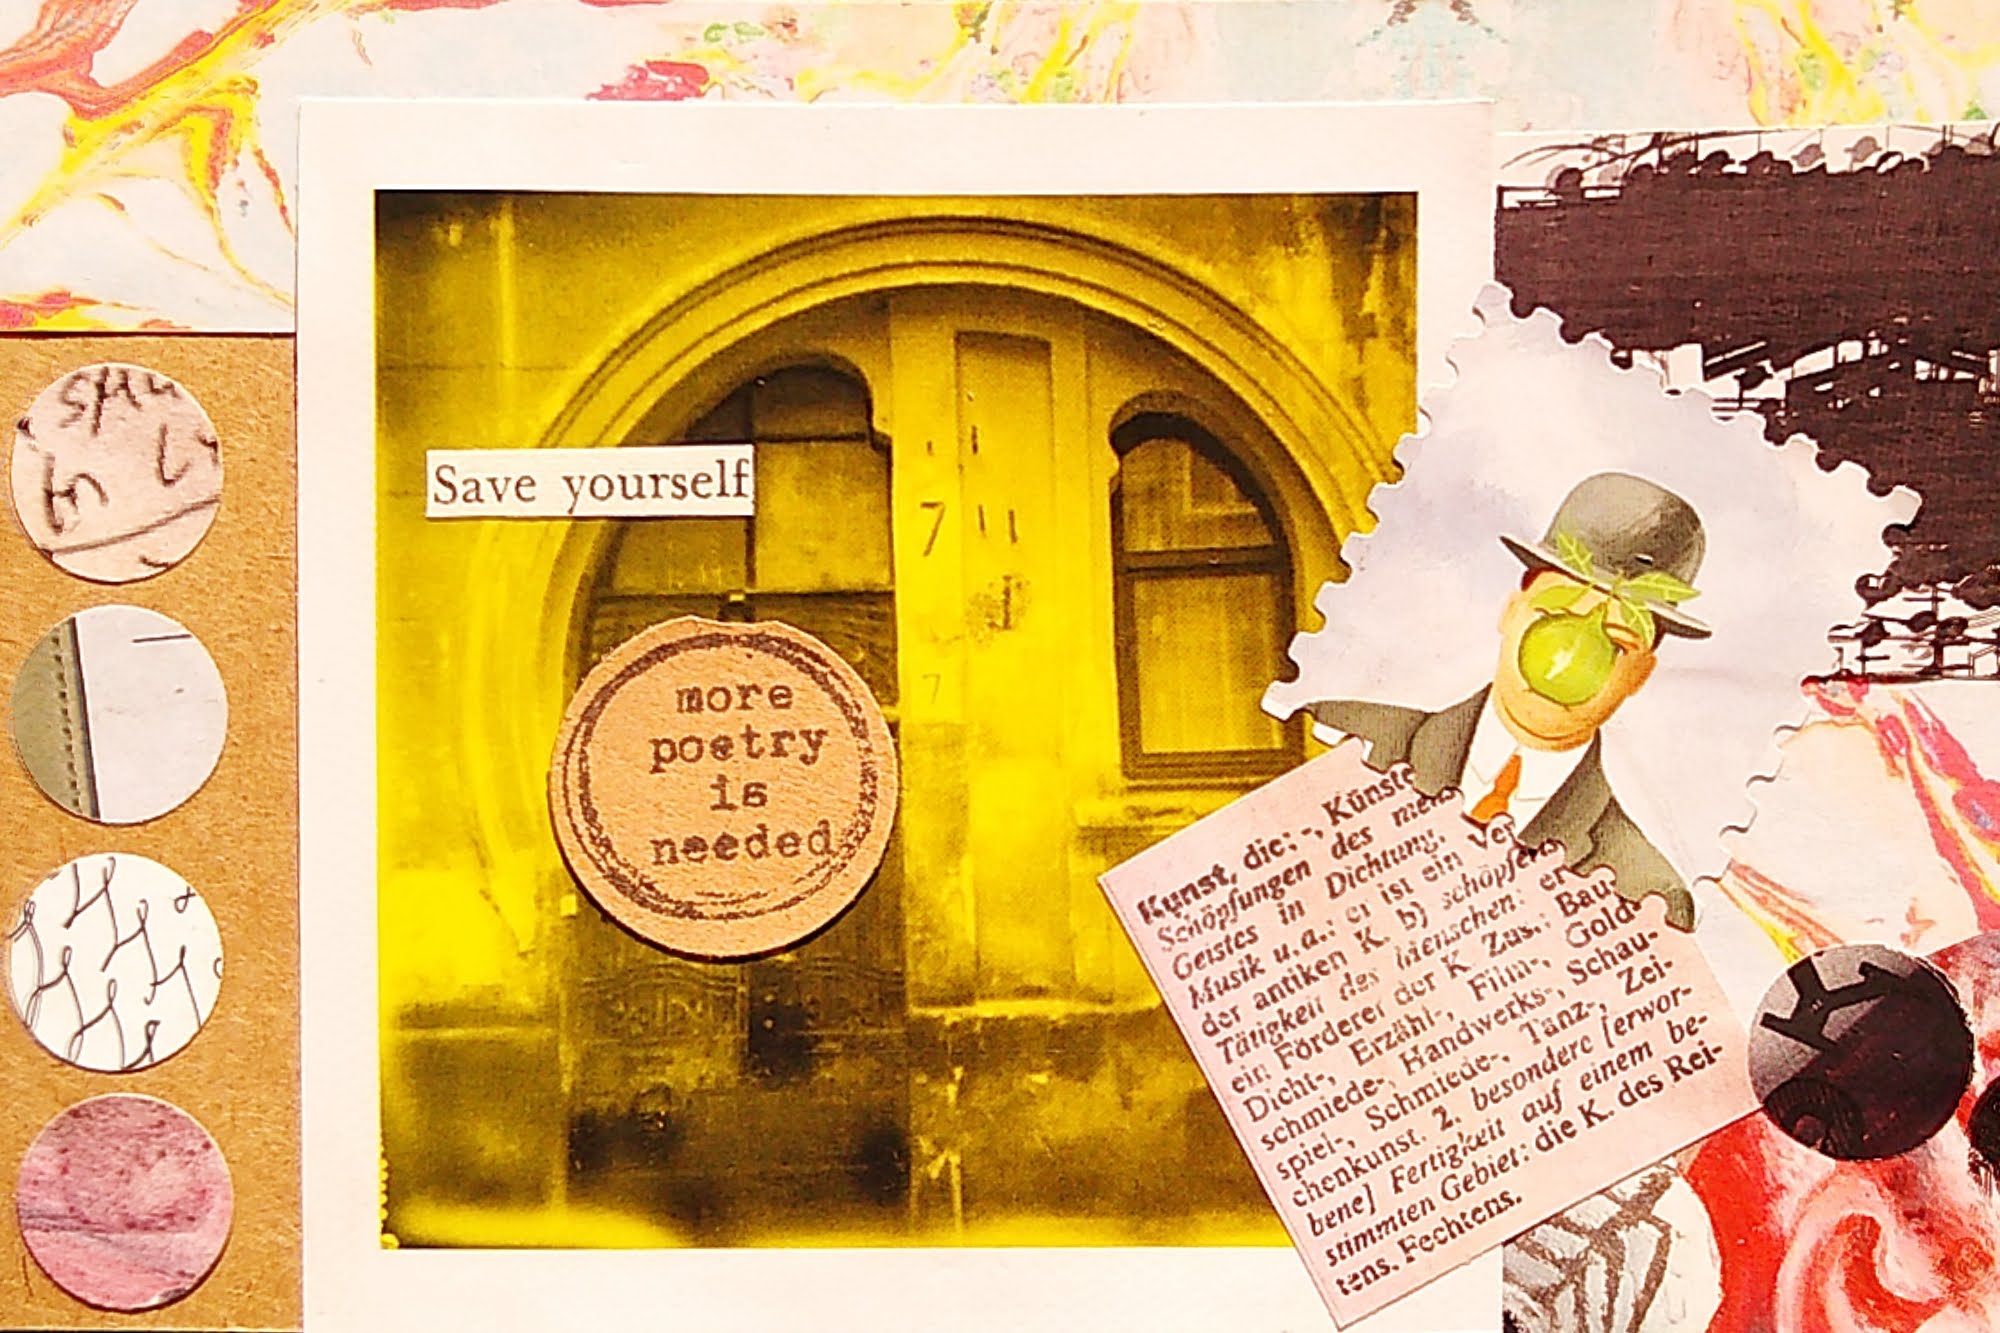 Save yourself
more
poetry
is
needed
7 11
7
Kunst, die; -, Künste
Schöpfungen des mens
Geistes in Dichtung,
Musik u.a.: er ist ein Ver
der antiken K. b) schöpferis
Tätigkeit des Menschen: er
ein Förderer der K. Zus.: Bau-
Dicht-, Erzähl-, Film-, Gold-
schmiede-, Handwerks-, Schau-
spiel-, Schmiede-, Tanz-, Zei-
chenkunst. 2. besondere [erwor-
bene] Fertigkeit auf einem be-
stimmten Gebiet: die K. des Rei-
tens, Fechtens.